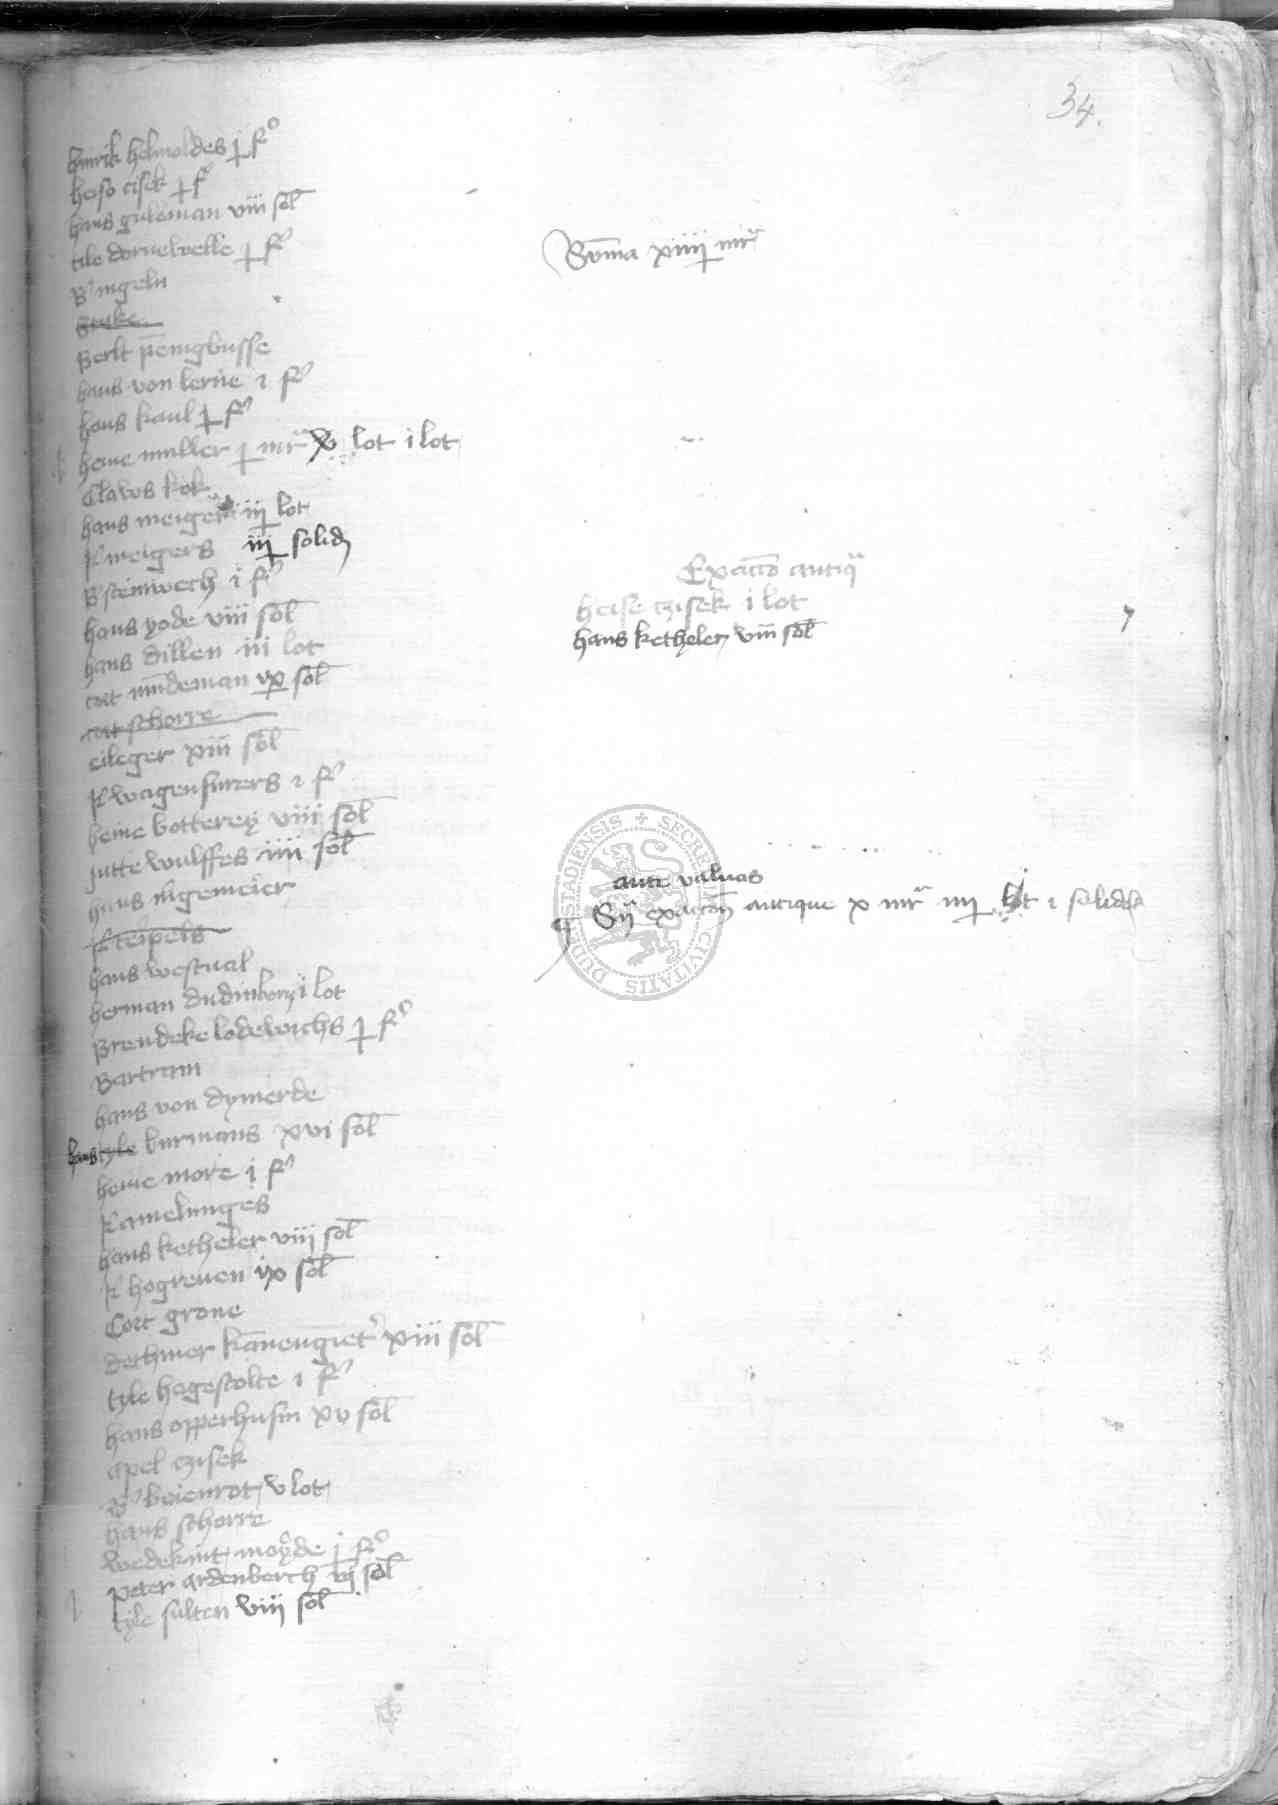 34.
henrik helmoldes j f
heiso cisek j f
hans guleman viii sol
tile dornewelle j f
B ingeln
Steke
Bertt penigbusse
hans von lerne i f
hans kaul j f
heine muller j mr x lot i lot
Clawes kok
hans meiger iij lot
R meigers iij solid
B steinwech i f
hans yode viii sol
hans dillen iii lot
cort mindeman ix sol
cort schorre
eileger xiii sol
R wagenfurers i f
heine botterey viii sol
jutte wulffes iiii sol
hans nigemeier
R teipels
hans westual
herman dudinborn i lot
Brendeke lodewichs j f
Bartram
hans von dymerde
hans tyle burmans xvi sol
heine more i f
R amelunges
hans ketheler viii sol
R hogreuen ix sol
Cort grone
dethmer kannengiet xiii sol
tyle hagestolte i f
hans opperhusin xv sol
apel czisek
B beienrot v lot
hans schorre
wedekint moyde j f
peter ardenberch vj sol
tyle sulten viii sol
Summa xiiij mr
Exactio antiq
heise czisek i lot
hans ketheler viii sol
ante valuas
Sum exaction antique x mr iiij lot i solid
SECRETUM CIVITATIS DUDERSTADIENSIS